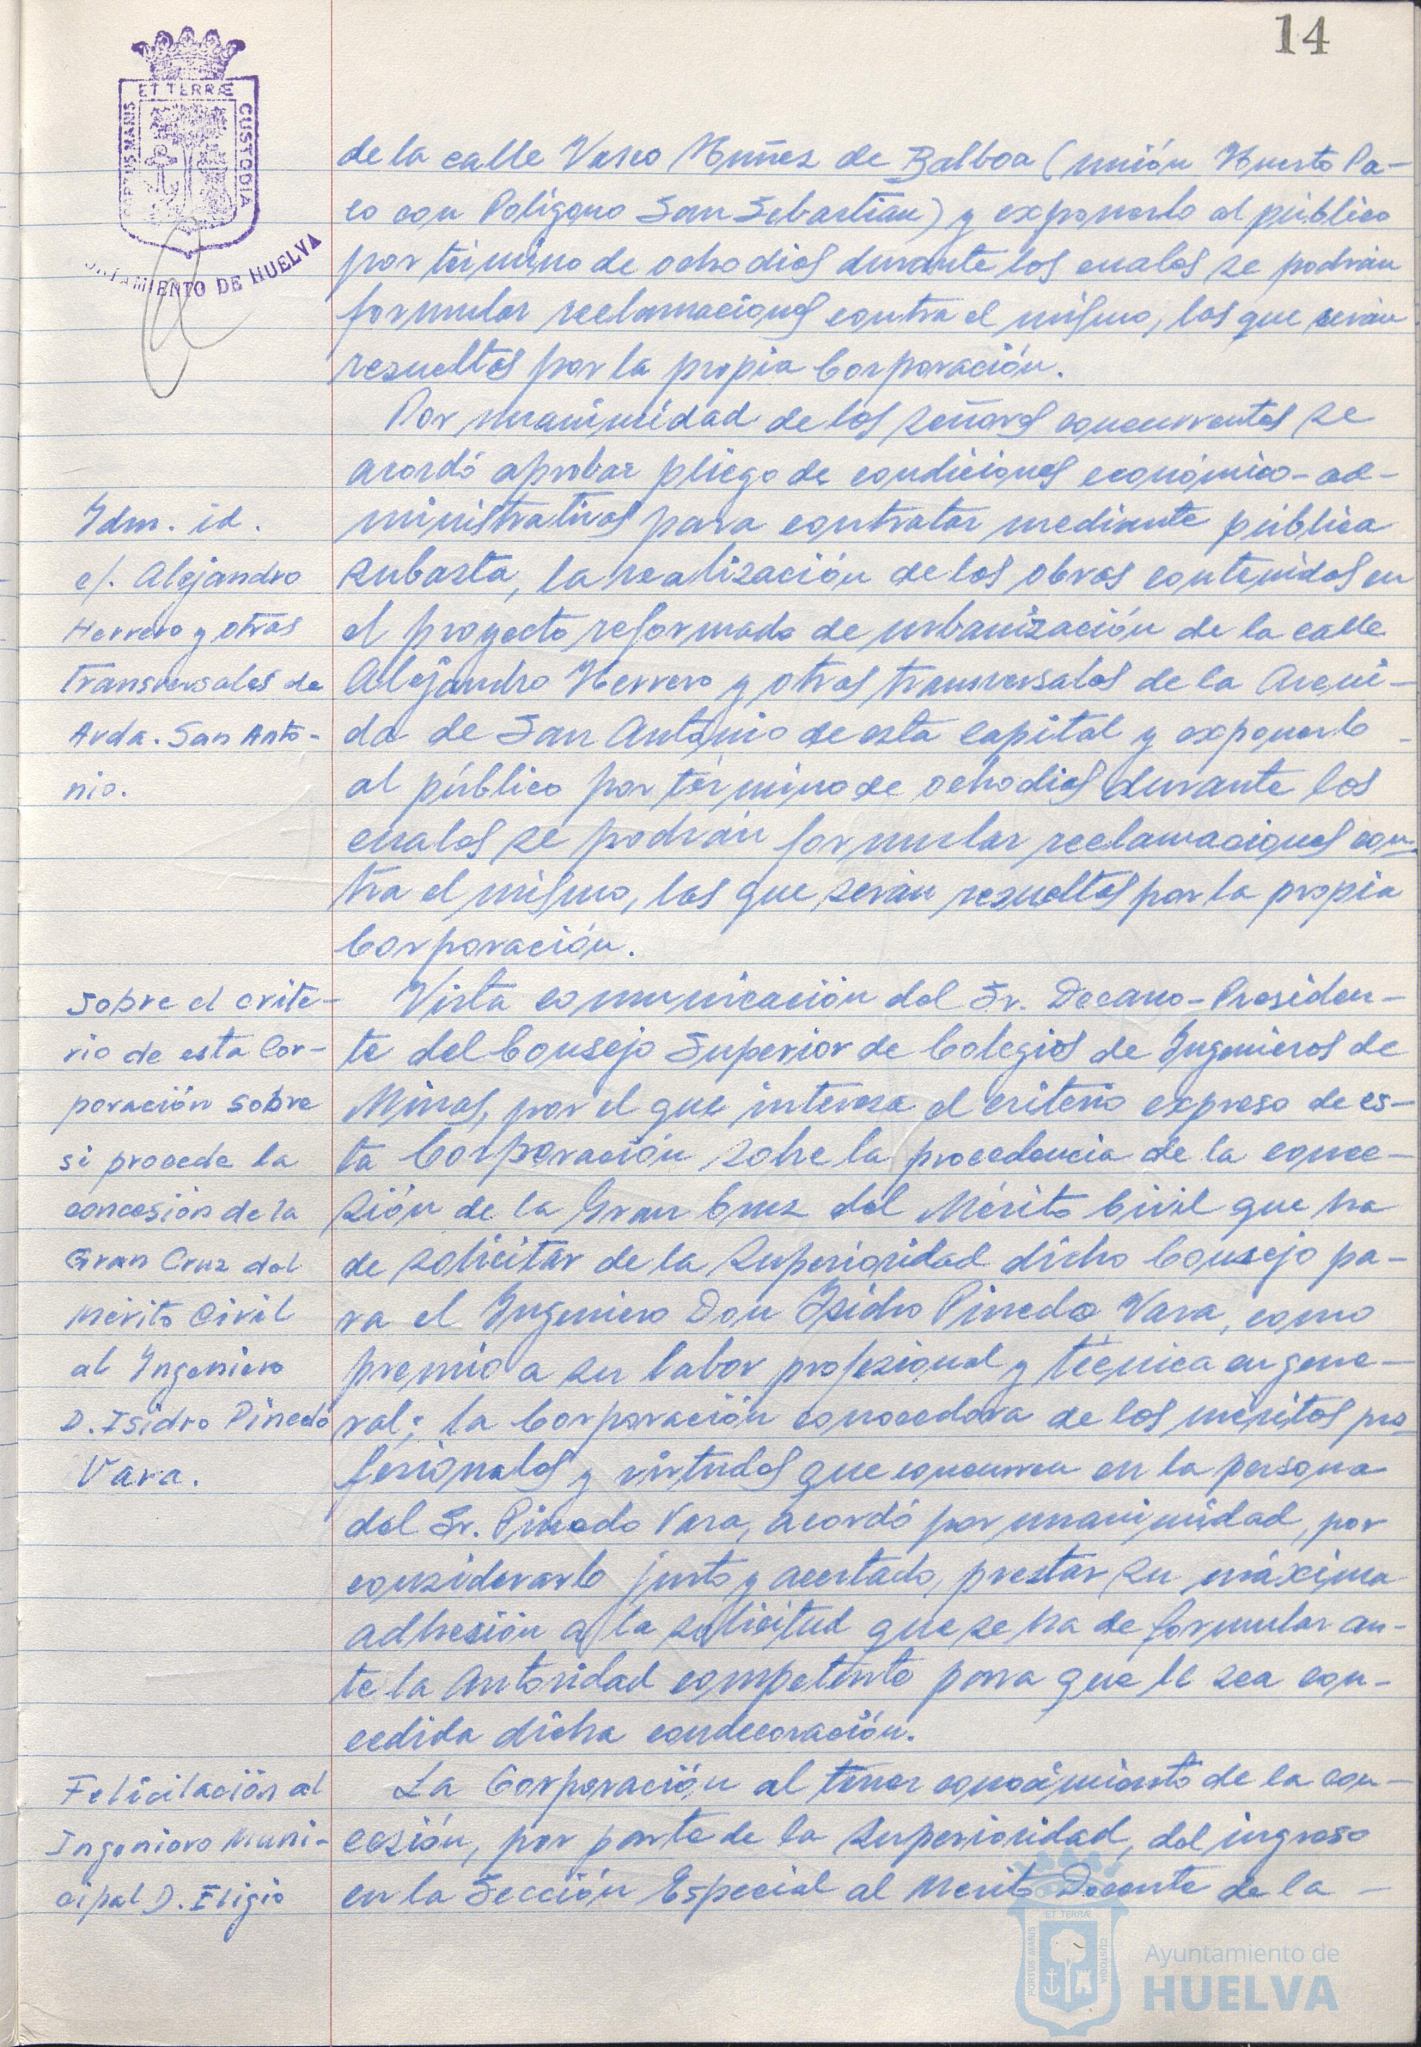 14
ET TERRÆ
PORTUS MARIS
CUSTODIA
AYUNTAMIENTO DE HUELVA
de la calle Vasco Nuñez de Balboa (unión Huerto Pa-
co con Polígono San Sebastián) y exponerlo al público
por término de ocho dias durante los cuales se podrán
formular reclamaciones contra el mismo, las que serán
resueltas por la propia Corporación.
Por unanimidad de los señores concurrentes se
acordó aprobar pliego de condiciones económico-ad-
Idm. id.
ministrativas para contratar mediante pública
c/. Alejandro
subasta, la realización de las obras contenidas en
Herrero y otras
el proyecto reformado de urbanización de la calle
Transversales de
Alejandro Herrero y otras transversales de la Aveni-
Avda. San Anto-
da de San Antonio de esta capital y exponerlo
nio.
al público por término de ocho dias durante los
cuales se podrán formular reclamaciones con-
tra el mismo, las que serán resueltas por la propia
Corporación.
Sobre el crite-
Vista comunicación del Sr. Decano-Presiden-
rio de esta Cor-
te del Consejo Superior de Colegios de Ingenieros de
poración sobre
Minas, por el que interesa el criterio expreso de es-
si procede la
ta Corporación sobre la procedencia de la conce-
concesión de la
sión de la Gran Cruz del Mérito Civil que ha
Gran Cruz del
de solicitar de la Superioridad dicho Consejo pa-
Mérito Civil
ra el Ingeniero Don Isidro Pinedo Vara, como
al Ingeniero
premio a su labor profesional y técnica en gene-
D. Isidro Pinedo
ral; la Corporación conocedora de los méritos pro-
Vara.
fesionales y virtudes que concurren en la persona
del Sr. Pinedo Vara, acordó por unanimidad, por
considerarlo justo y acertado, prestar su máxima
adhesión a la solicitud que se ha de formular an-
te la Autoridad competente para que le sea con-
cedida dicha condecoración.
Felicitación al
La Corporación al tener conocimiento de la con-
Ingeniero Muni-
cesión, por parte de la Superioridad, del ingreso
cipal D. Eligio
en la Sección Especial al Mérito Docente de la -
ET TERRÆ
PORTUS MARIS
CUSTODIA
Ayuntamiento de
HUELVA